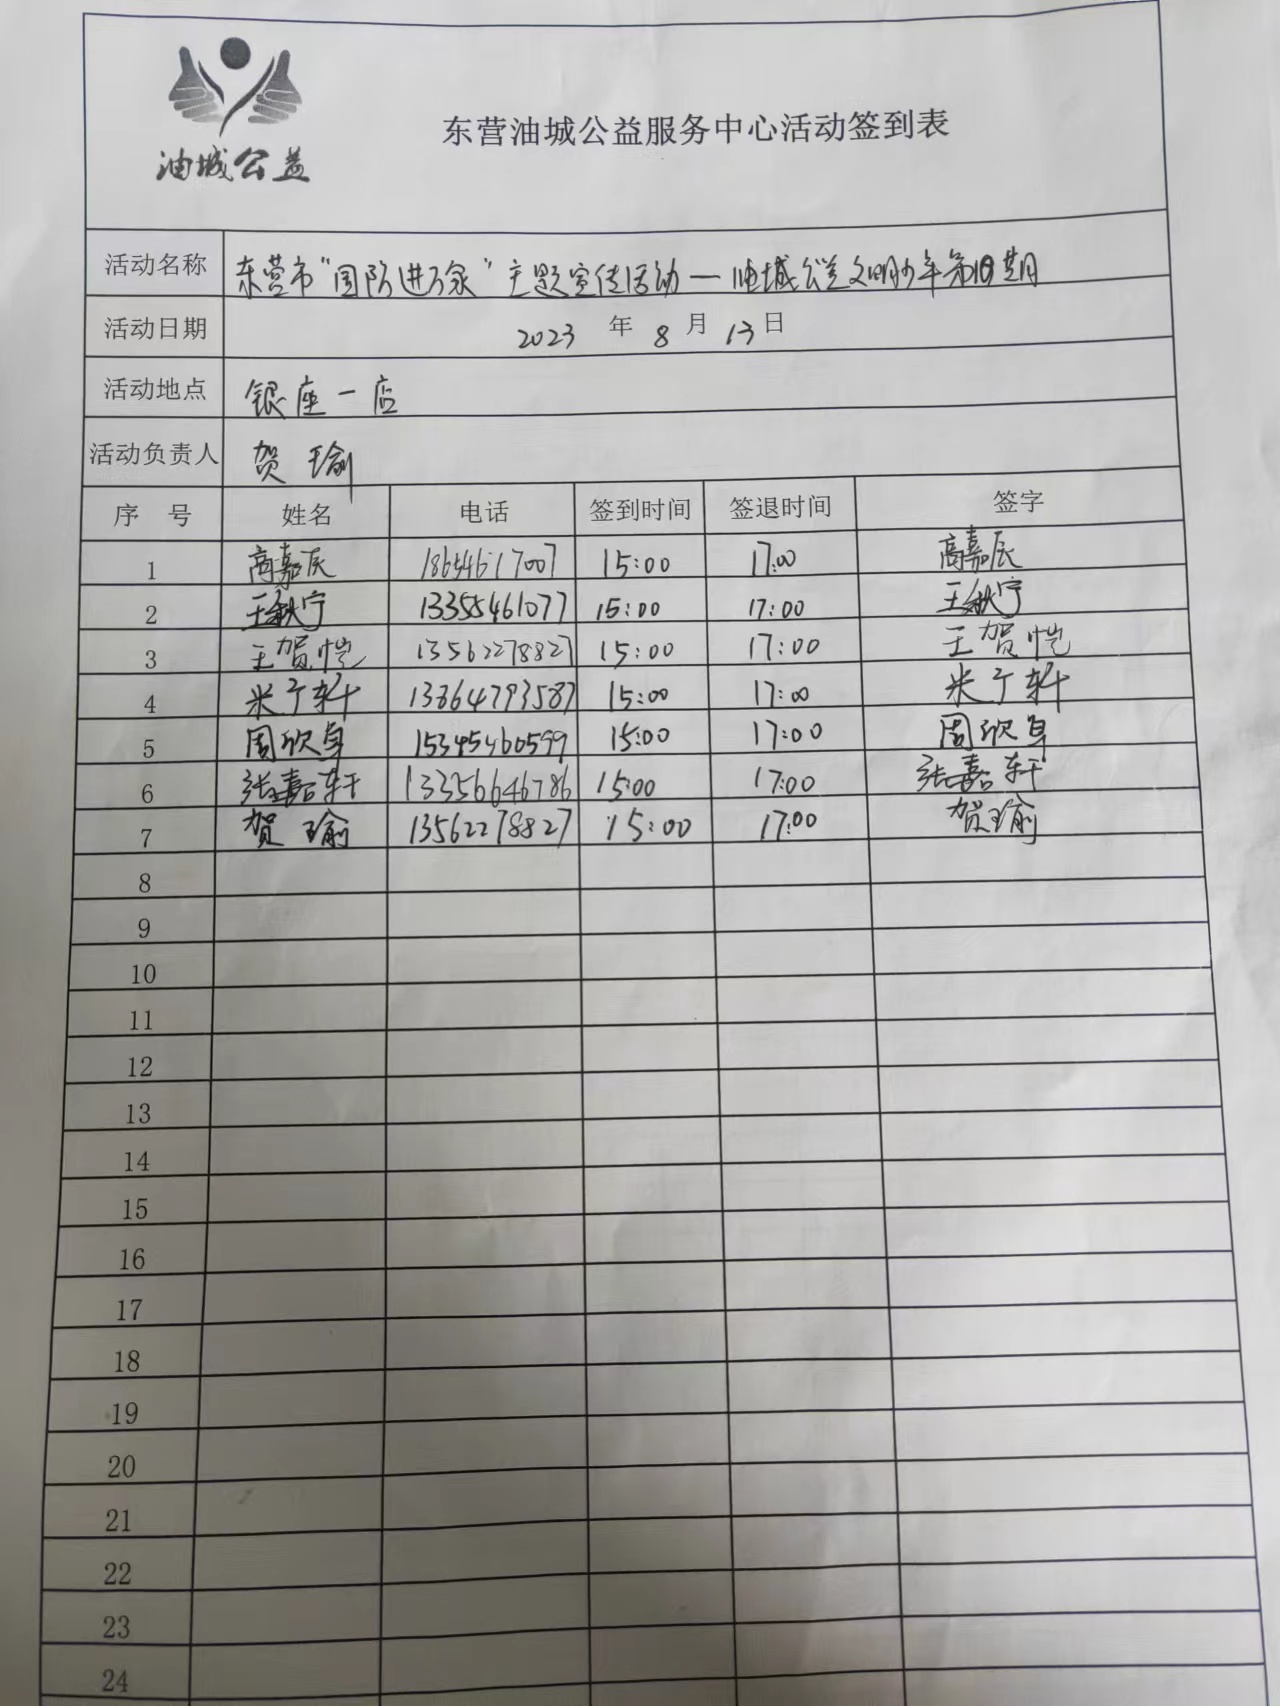 油城公益
东营油城公益服务中心活动签到表
活动名称 东营市“国防进万家”主题宣传活动—油城公益文明少年第18期
活动日期 2023 年 8 月 13 日
活动地点 银座一店
活动负责人 贺瑜
序 号 姓名 电话 签到时间 签退时间 签字
1 高嘉辰 18654617007 15:00 17:00 高嘉辰
2 王秋宁 13355461077 15:00 17:00 王秋宁
3 王贺恺 13562278827 15:00 17:00 王贺恺
4 米子轩 13864793587 15:00 17:00 米子轩
5 周欣卓 15345460599 15:00 17:00 周欣卓
6 张嘉轩 13356646786 15:00 17:00 张嘉轩
7 贺瑜 13562278827 15:00 17:00 贺瑜
8
9
10
11
12
13
14
15
16
17
18
19
20
21
22
23
24